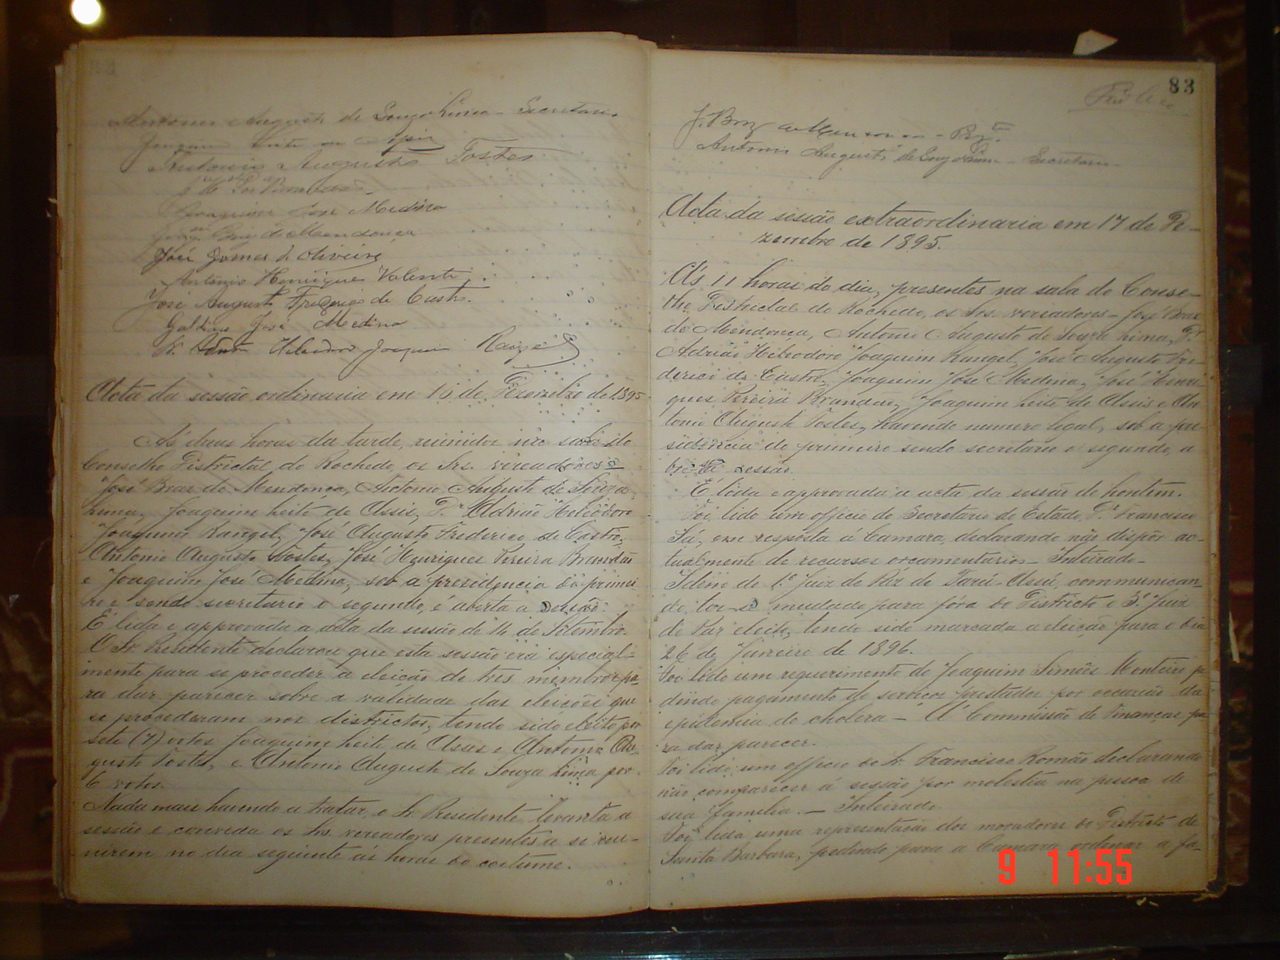 Antonio Augusto de Souza Lima - Secretario
Joaquim Leite de Assis
Antonio Augusto Tostes
Joaquim José Medina
José Braz de Mendonça
José Gomes d'Oliveira
Antonio Henrique Valente
José Augusto Frederico de Castro
Galdino José Medina
Adrião Heliodoro Joaquim Rangel
Acta da sessão ordinaria em 16 de Dezembro de 1895
Ás duas horas da tarde, reunidos na sala do
Conselho Districtal do Rochedo os Srs. vereadores
José Braz de Mendonça, Antonio Augusto de Souza
Lima, Joaquim Leite de Assis, Dr. Adrião Heliodoro
Joaquim Rangel, José Augusto Frederico de Castro,
Antonio Augusto Tostes, José Henriques Pereira Brandão
e Joaquim José Medina, sob a presidencia do primei-
ro e sendo secretario o segundo, é aberta a sessão.
É lida e approvada a acta da sessão de 14 de Setembro.
O Sr. Presidente declarou que esta sessão era especial-
mente para se proceder a eleição de tres membros pa-
ra dar parecer sobre a validade das eleições que
se procederam nos districtos, tendo sido eleito por
sete (7) votos Joaquim Leite de Assis e Antonio Au-
gusto Tostes, e Antonio Augusto de Souza Lima por
6 votos.
Nada mais havendo a tratar, o Sr. Presidente levanta a
sessão e convida os Srs. vereadores presentes a se reu-
nirem no dia seguinte ás horas do costume.
83
J. Braz de Mendonça - Prez.te
Antonio Augusto de Souza Lima - Secretario
Acta da sessão extraordinaria em 17 de De-
zembro de 1895.
Ás 11 horas do dia, presentes na sala do Conse-
lho Districtal do Rochedo, os Srs. vereadores - José Braz
de Mendonça, Antonio Augusto de Souza Lima, Dr.
Adrião Heliodoro Joaquim Rangel, José Augusto Fre-
derico de Castro, Joaquim José Medina, José Henri-
ques Pereira Brandão, Joaquim Leite de Assis e An-
tonio Augusto Tostes, havendo numero legal, sob a pre-
sidencia do primeiro sendo secretario o segundo, a
sessão.
É lida e approvada a acta da sessão de hontem.
Foi lido um officio do Secretario de Estado, Dr. Francisco
Sá, em resposta á Camara, declarando não dispôr ac-
tualmente de recursos orçamentarios - Inteirado.
Idem do 1º Juiz de Paz de Sarã-Assú, communican-
do ter-se mudado para fóra do Districto o 3º Juiz
de Paz eleito, tendo sido marcada a eleição para o dia
26 de Janeiro de 1896.
Foi lido um requerimento de Joaquim Simões Monteiro pe-
dindo pagamento de serviços prestados por occasião da
epidemia de cholera - Á Commissão de Finanças pa-
ra dar parecer.
Foi lido um officio do Sr. Francisco Romão declarando
não comparecer á sessão por molestia na pessoa de
sua familia. - Inteirado.
Foi lida uma representação dos moradores do Districto de
Santa Barbara, pedindo para a Camara ordenar a fa-
9 11:55